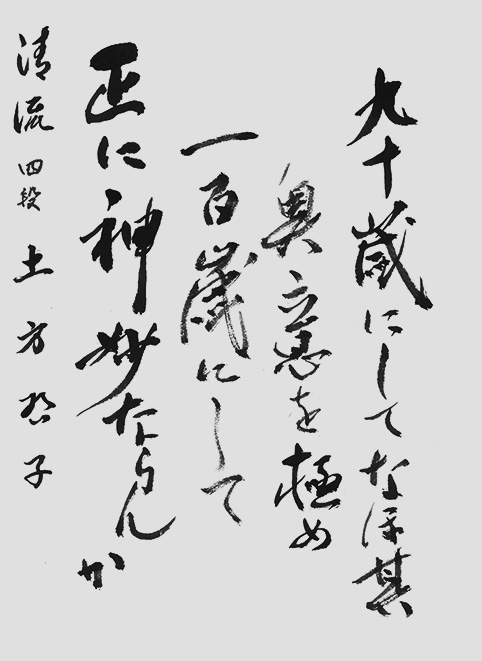 九十歳にしてなほ其
奥意を極め
一百歳にして
正に神妙ならんか
清流 四段 土方 子